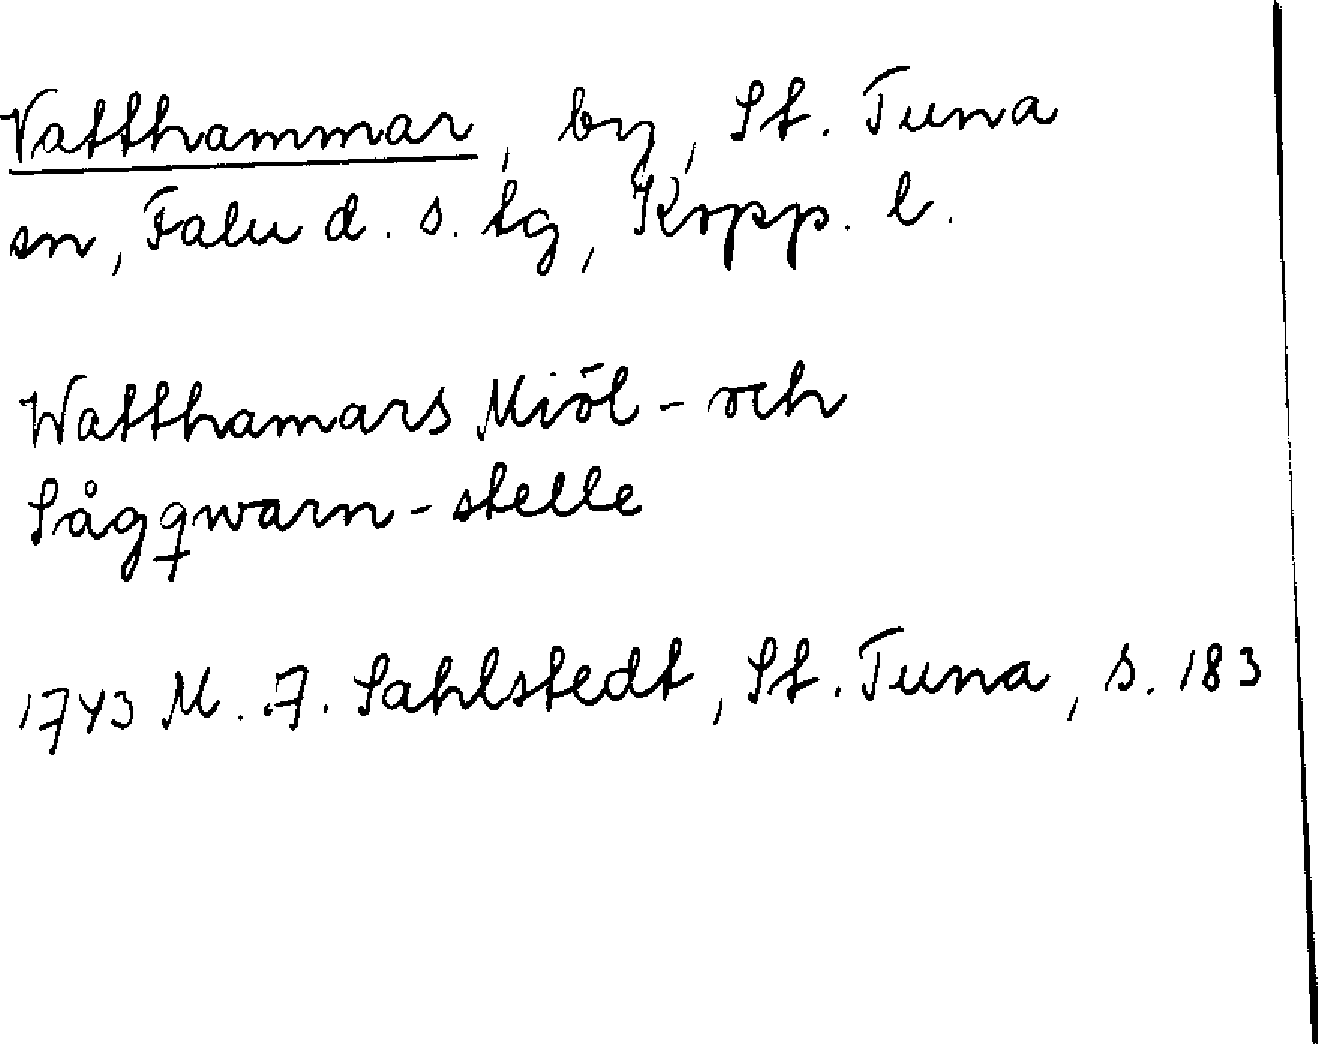 Vatthammar, by, St. Tuna
sn, Falu d. s. tg, Kopp. l.
Watthamars Miöl- och
Sågqwarn-stelle
1743 M. A. Sahlstedt, St. Tuna, s. 183